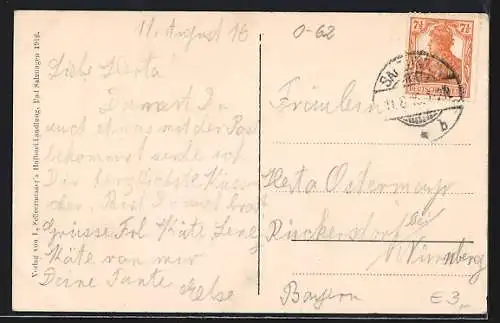 11. August 16
O-62
7½ 7½
Liebe Herta!
Damit Du
auch etwas mit der Post
bekommst sende ich
Dir herzlichste Küss-
chen. Bist Du auch brav
Grüsse Frl. Käte
Käte von mir
Deine Tante
Else
Fräulein
Herta Ostermayr
Rückersdorf bei
Nürnberg
Bayern
E 3,-
b
Verlag von L. Scheermesser's Hofbuchhandlung, Bad Salzungen 1912.